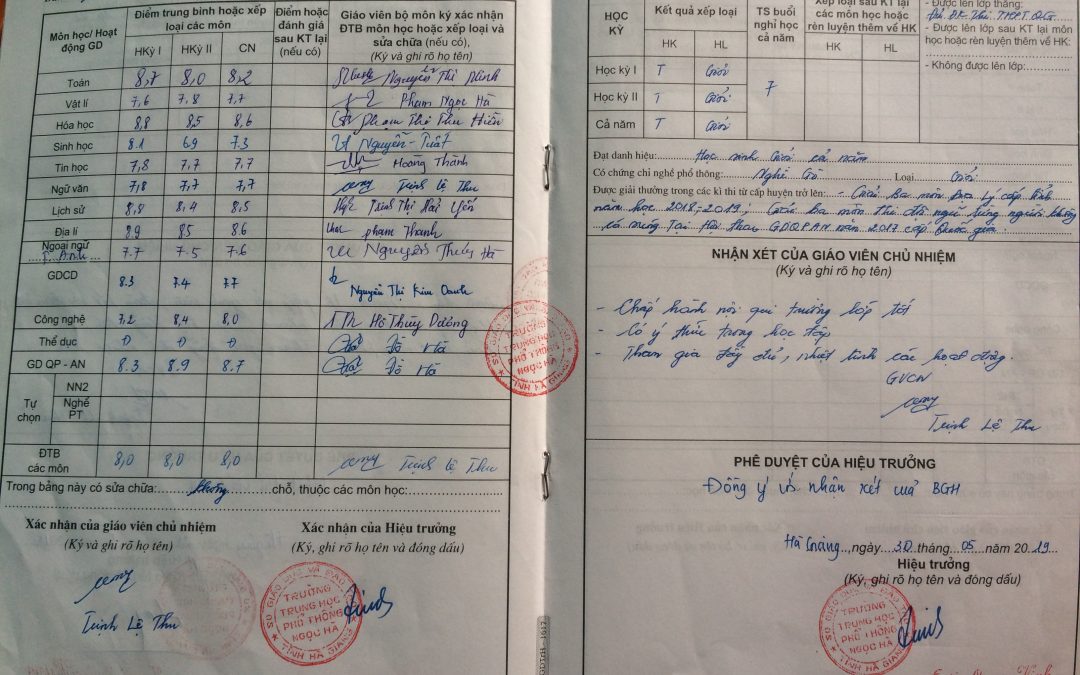 Môn học/ Hoạt động GD
Điểm trung bình hoặc xếp loại các môn
HKỳ I HKỳ II CN
Điểm hoặc đánh giá sau KT lại (nếu có)
Giáo viên bộ môn ký xác nhận ĐTB môn học hoặc xếp loại và sửa chữa (nếu có),
(Ký và ghi rõ họ tên)
Toán 8,7 8,0 8,2 Nguyễn Thị Minh
Vật lí 7,6 7,8 7,7 Phạm Ngọc Hà
Hóa học 8,8 8,5 8,6 Phạm Thị Thu Hiền
Sinh học 8.1 6.9 7.3 Nguyễn Tuất
Tin học 7,8 7,7 7,7 Hoàng Thành
Ngữ văn 7,8 7,7 7,7 Trịnh Lệ Thu
Lịch sử 8,8 8,4 8,5 Trịnh Thị Hải Yến
Địa lí 8.9 8.5 8.6 Phạm Thanh
Ngoại ngữ T. Anh 7.7 7.5 7.6 Nguyễn Thúy Hà
GDCD 8.3 7.4 7.7 Nguyễn Thị Kim Oanh
Công nghệ 7,2 8,4 8,0 Hồ Thùy Dương
Thể dục Đ Đ Đ Đỗ Hà
GD QP - AN 8.3 8.9 8.7 Đỗ Hà
Tự chọn
NN2
Nghề PT
ĐTB các môn 8,0 8,0 8,0 Trịnh Lệ Thu
Trong bảng này có sửa chữa: Không chỗ, thuộc các môn học:
Xác nhận của giáo viên chủ nhiệm
(Ký và ghi rõ họ tên)
Trịnh Lệ Thu
Xác nhận của Hiệu trưởng
(Ký, ghi rõ họ tên và đóng dấu)
SỞ GIÁO DỤC VÀ ĐÀO TẠO
TRƯỜNG
TRUNG HỌC
PHỔ THÔNG
NGỌC HÀ
TỈNH HÀ GIANG
HỌC KỲ
Kết quả xếp loại
HK HL
TS buổi nghỉ học cả năm
Xếp loại sau KT lại các môn học hoặc rèn luyện thêm về HK
HK HL
Học kỳ I T Giỏi
Học kỳ II T Giỏi
Cả năm T Giỏi
7
- Được lên lớp thẳng:
Đủ ĐK Thi THPT QG.
- Được lên lớp sau KT lại môn học hoặc rèn luyện thêm về HK:
- Không được lên lớp:
Đạt danh hiệu: Học sinh Giỏi cả năm
Có chứng chỉ nghề phổ thông: Nghề Gò Loại Giỏi
Được giải thưởng trong các kì thi từ cấp huyện trở lên: - Giải ba môn Địa Lý cấp tỉnh
năm học 2018-2019; Giải ba môn Thi đội ngũ từng người không
có súng tại Hội thao GDQPAN năm 2017 cấp Quốc gia.
NHẬN XÉT CỦA GIÁO VIÊN CHỦ NHIỆM
(Ký và ghi rõ họ tên)
- Chấp hành nội qui trường lớp tốt
- Có ý thức trong học tập
- Tham gia đầy đủ, nhiệt tình các hoạt động.
GVCN
Trịnh Lệ Thu
PHÊ DUYỆT CỦA HIỆU TRƯỞNG
Đồng ý với nhận xét của BGH
Hà Giang, ngày 30 tháng 05 năm 2019
Hiệu trưởng
(Ký, ghi rõ họ tên và đóng dấu)
SỞ GIÁO DỤC VÀ ĐÀO TẠO
TRƯỜNG
TRUNG HỌC
PHỔ THÔNG
NGỌC HÀ
TỈNH HÀ GIANG